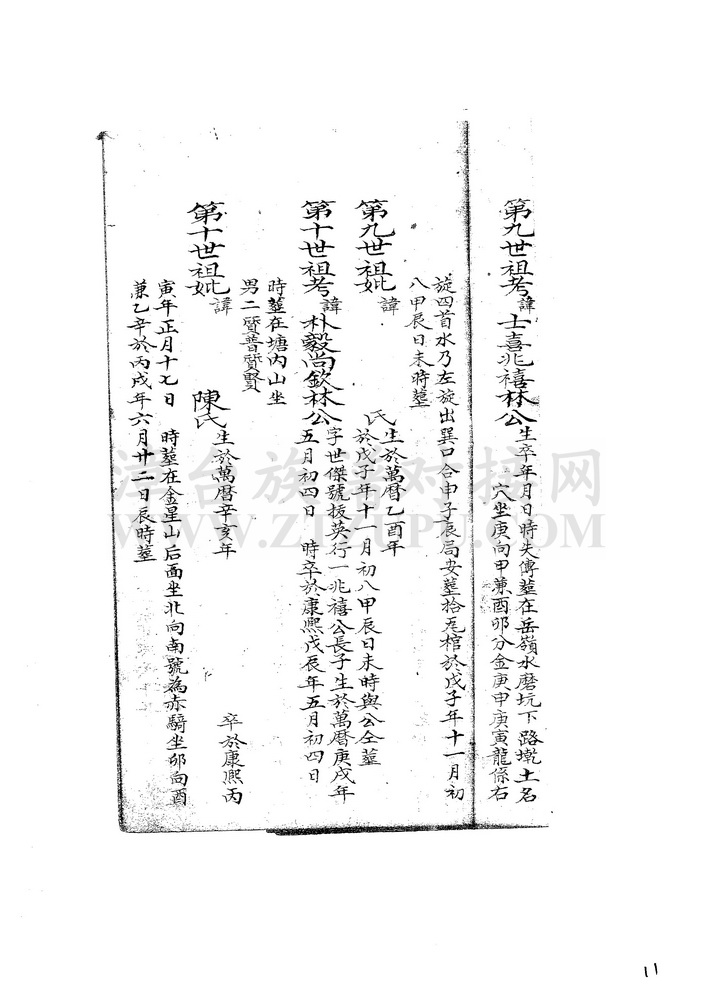 第九世祖考諱士喜兆禧林公生卒年月日時失傳塟在岳嶺水磨坑下路墘土名
穴坐庚向甲兼酉卯分金庚申庚寅龍係右
旋四首水乃左旋出巽口合申子辰局安塟拾瓦棺於戊子年十一月初
八甲辰日未時塟
第九世祖妣諱 氏生於萬曆乙酉年
於戊子年十一月初八甲辰日未時與公仝塟
第十世祖考諱朴毅尚欽林公字世傑號拔英行一兆禧公長子生於萬曆庚戌年
五月初四日 時卒於康熙戊辰年五月初四日
時塟在塘內山坐
男二賢普賢賢
第十世祖妣諱 陳氏生於萬曆辛亥年 卒於康熙丙
寅年正月十七日 時塟在金星山后面坐北向南號為赤騎坐卯向酉
兼乙辛於丙戌年六月廿二日辰時塟
浯台族譜对接网
WWW.ZTZUPU.COM
11